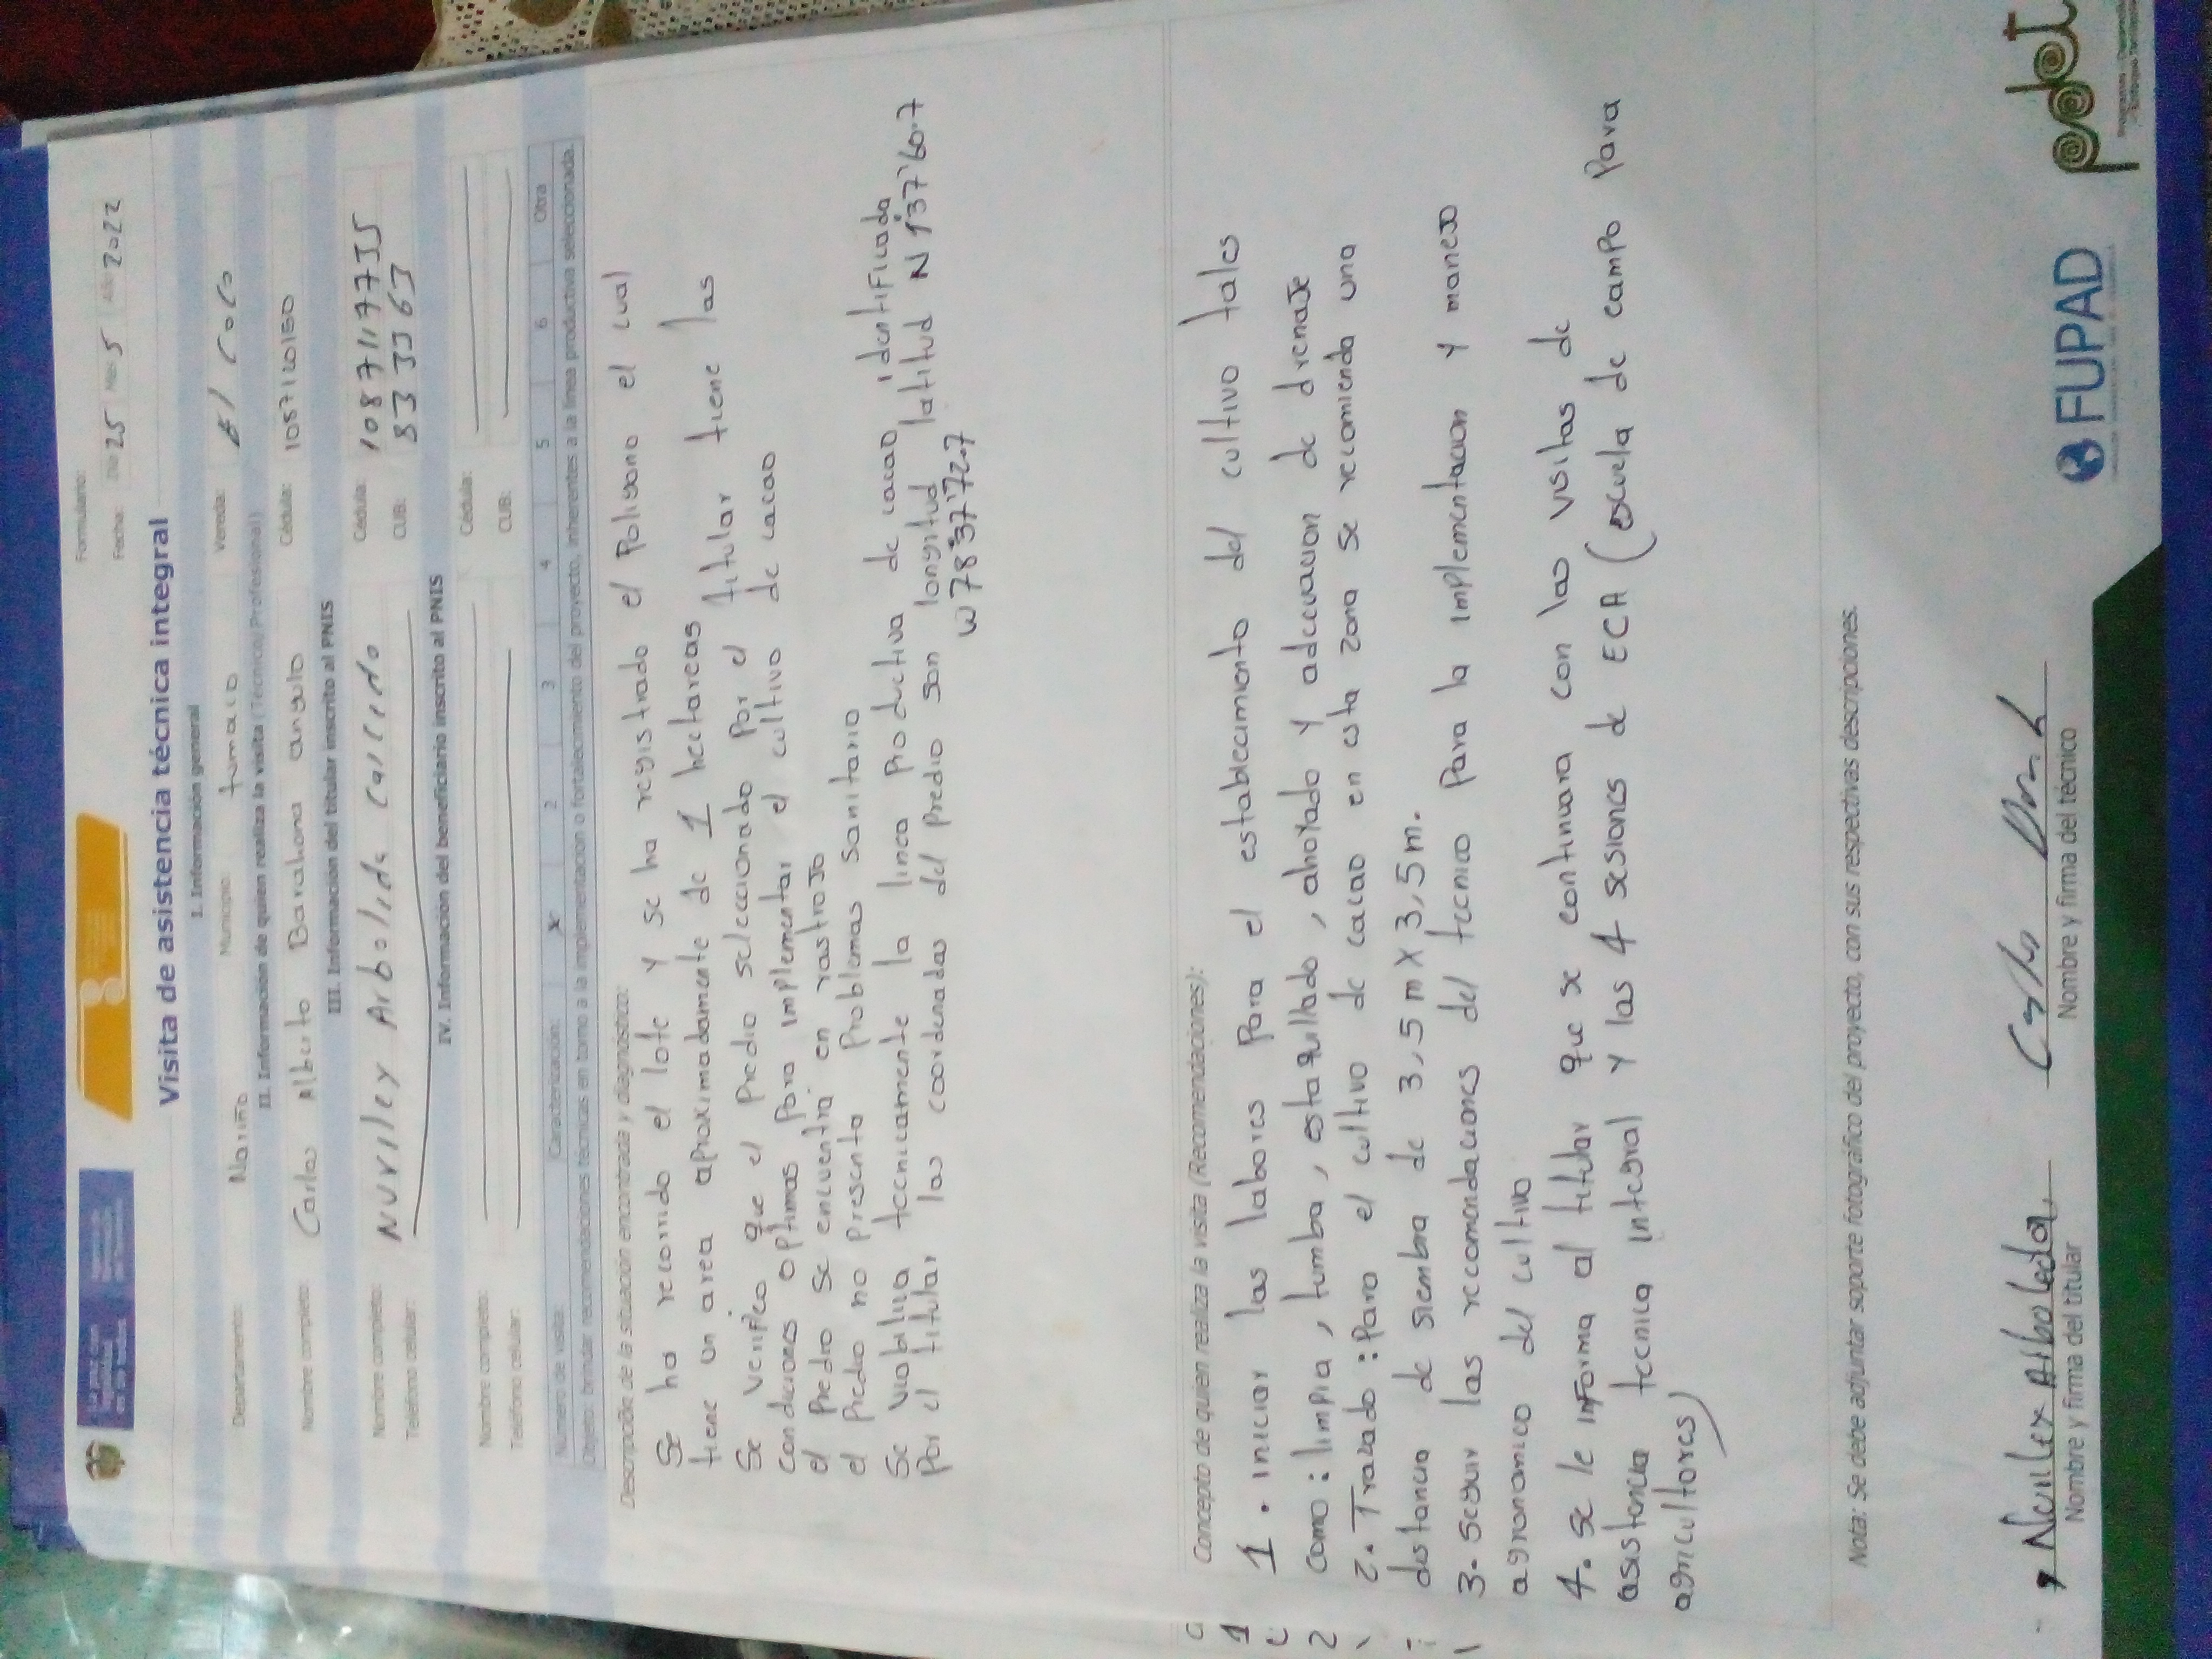 Formulario:
Fecha: Día 25 Mes 5 Año 2022
Visita de asistencia técnica integral
I. Información general
Departamento: Nariño Municipio: tumaco Vereda: El Coco
II. Información de quien realiza la visita (Técnico/Profesional)
Nombre completo: Carlos Alberto Barahona angulo Cédula:
III. Información del titular inscrito al PNIS
Nombre completo: Nuviley Arboleda Caicedo Cédula:
Teléfono celular: CUB:
IV. Información del beneficiario inscrito al PNIS
Nombre completo: Cédula:
Teléfono celular: CUB:
Número de visita: Caracterización: x 2 3 4 5 6 Otra
Objeto: brindar recomendaciones técnicas en torno a la implementación o fortalecimiento del proyecto, inherentes a la línea productiva seleccionada.
Descripción de la situación encontrada y diagnóstico:
Se ha recorrido el lote y se ha registrado el Poligono el cual
tiene un area aproximadamente de 1 hectareas
Se verifico que el Predio seleccionado Por el titular tiene las
condiciones optimas Para implementar el cultivo de cacao
el Predio se encuentra en rastroJo
el Predio no Presenta Problemas sanitario
Se viabiliza tecnicamente la linea Productiva de cacao identificada
Por el titular las coordenadas del Predio son longitud latitud N 1°37'60.7
W 78°37'72.7
Concepto de quien realiza la visita (Recomendaciones):
1. iniciar las labores Para el establecimiento del cultivo tales
como: limpia, tumba, estaquillado, ahoyado y adecuacion de drenaJe
2. Trazado: Para el cultivo de cacao en esta zona se recomienda una
distancia de siembra de 3,5m X 3,5m.
3. Seguir las recomendaciones del tecnico Para la implementacion y maneJo
agronomico del cultivo
4. se le informa al titular que se continuara con las visitas de
asistencia tecnica integral y las 4 sesiones de ECA (escuela de campo Para
agricultores)
Nota: Se debe adjuntar soporte fotográfico del proyecto, con sus respectivas descripciones.
Nuviley Arboleda
Nombre y firma del titular Nombre y firma del técnico
FUPAD pdet